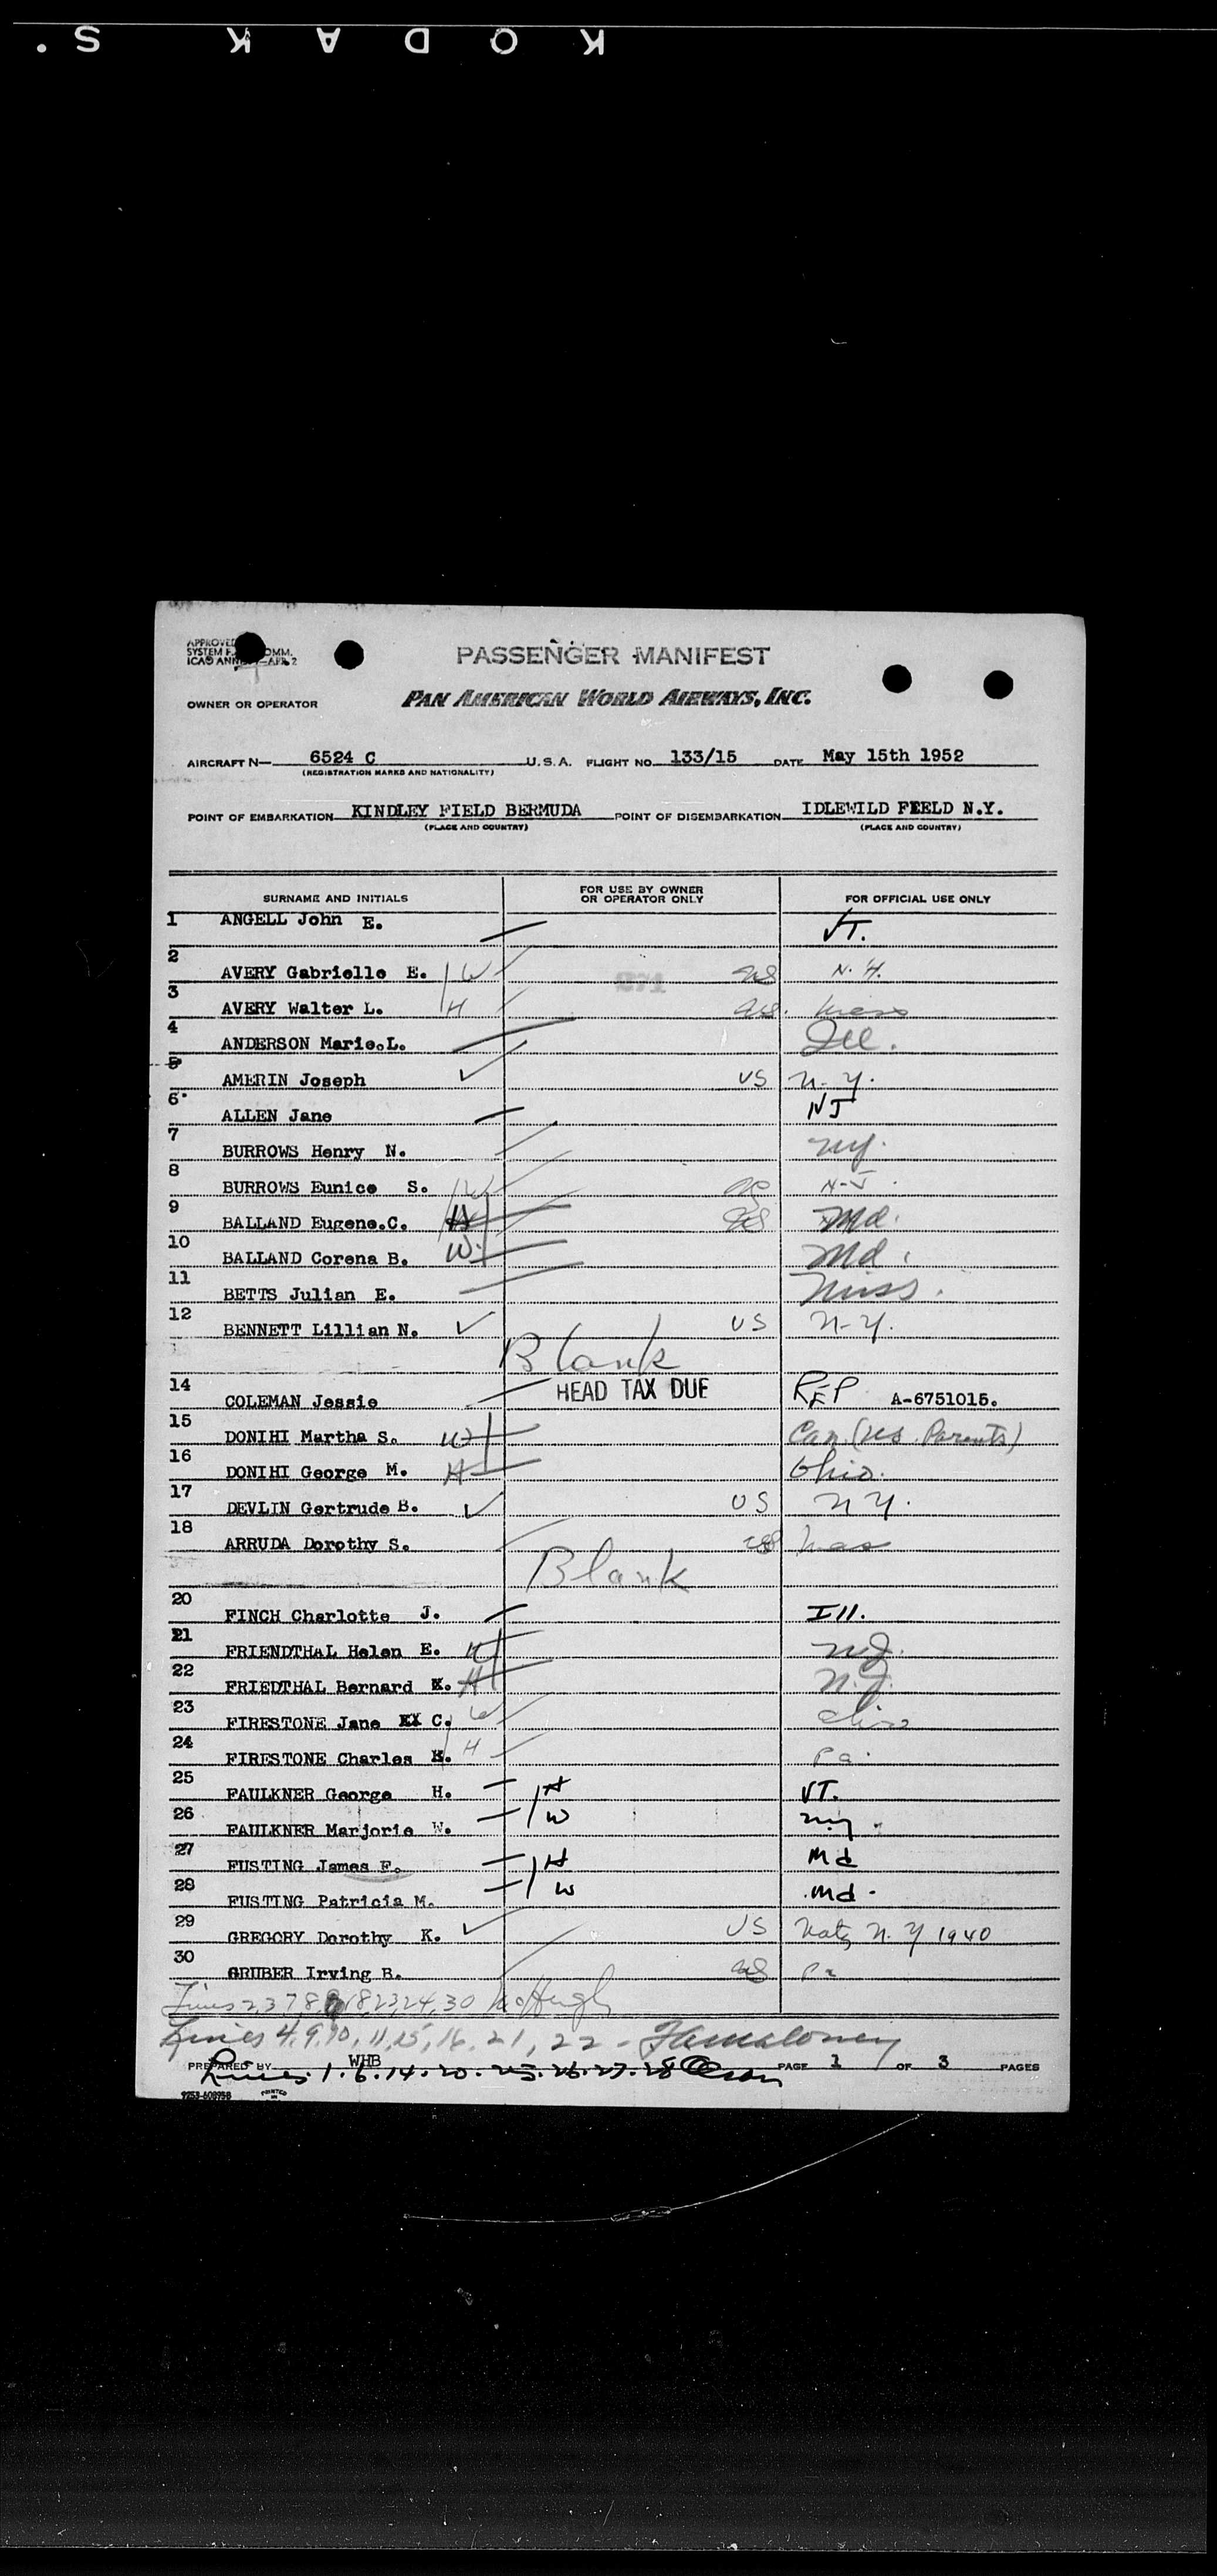 KODAK S.
APPROVED
SYSTEM F. COMM.
ICAO ANNEX
PASSENGER MANIFEST
OWNER OR OPERATOR PAN AMERICAN WORLD AIRWAYS, INC.
AIRCRAFT N— 6524 C U.S.A. FLIGHT NO. 133/15 DATE May 15th 1952
(REGISTRATION MARKS AND NATIONALITY)
POINT OF EMBARKATION KINDLEY FIELD BERMUDA POINT OF DISEMBARKATION IDLEWILD FIELD N.Y.
(PLACE AND COUNTRY) (PLACE AND COUNTRY)
SURNAME AND INITIALS FOR USE BY OWNER OR OPERATOR ONLY FOR OFFICIAL USE ONLY
1 ANGELL John E. VT.
2 AVERY Gabrielle E. W 271 US N.H.
3 AVERY Walter L. H US. Mass
4 ANDERSON Marie.L. Ill.
5 AMERIN Joseph ✓ US N.Y.
6 ALLEN Jane NJ
7 BURROWS Henry N. NY.
8 BURROWS Eunice S. W US N-J.
9 BALLAND Eugene.C. H US Md.
10 BALLAND Corena B. W. Md.
11 BETTS Julian E. Miss.
12 BENNETT Lillian N. ✓ US N-Y.
Blank
14 COLEMAN Jessie HEAD TAX DUE REP A-6751015.
15 DONIHI Martha S. W Can. (US. Parents)
16 DONIHI George M. H Ohio.
17 DEVLIN Gertrude B. ✓ US NY.
18 ARRUDA Dorothy S. US Mas
Blank
20 FINCH Charlotte J. Ill.
21 FRIENDTHAL Helen E. W NJ.
22 FRIEDTHAL Bernard K. H N.J.
23 FIRESTONE Jane C. W Ohio
24 FIRESTONE Charles H Pa.
25 FAULKNER George H. H VT.
26 FAULKNER Marjorie W. W NY.
27 FUSTING James F. H Md
28 FUSTING Patricia M. W Md.
29 GREGORY Dorothy K. ✓ US Natz N.Y 1940
30 GRUBER Irving B. US Pa
Lines 2,3,7,8, 18,23,24,30
Lines 4,9,10,11,15,16,21,22 - Maloney
PREPARED BY WHB PAGE 1 OF 3 PAGES
Lines 1.6.14.20.25.26.27.28 Olson
PRINTED IN